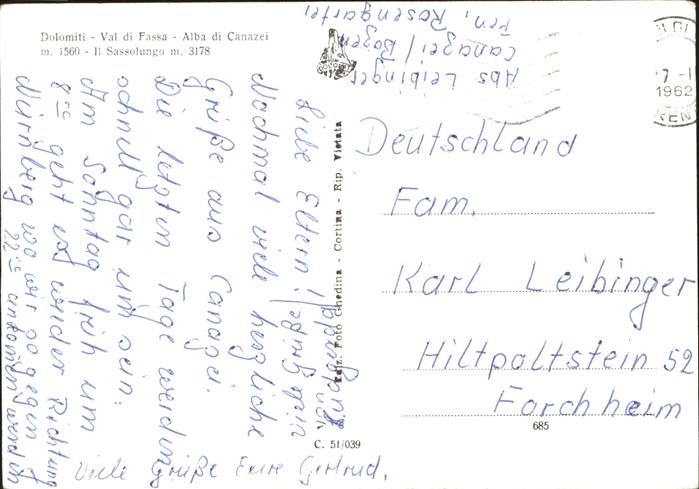 Dolomiti - Val di Fassa - Alba di Canazei
m. 1560 - Il Sassolungo m. 3178
Abs Leibinger
Canazei/Bozen
Pen. Rosengarten
7 - 1
1962
TREN
Liebe Eltern!
Nochmal viele herzliche
Grüße aus Canazei.
Die letzten Tage werden
schnell gar um sein.
Am Sonntag früh um
8 00 geht es wieder Richtung
Nürnberg wo wir so gegen
22 00 ankommen werden
Viele Grüße Eure Gertrud.
Ediz. Foto Ghedina - Cortina - Rip. Vietata
C. 51/039
Deutschland
Fam.
Karl Leibinger
Hiltpoltstein 52
Forchheim
685